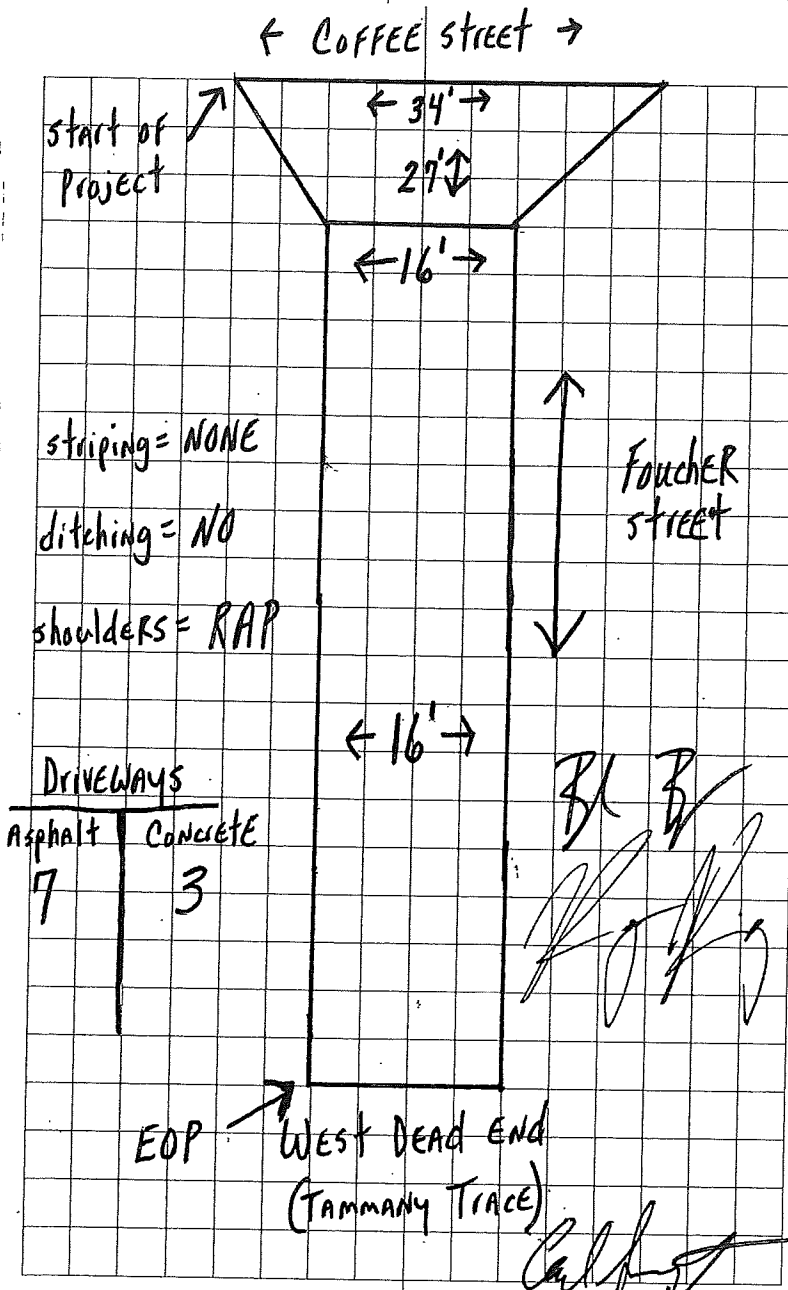 ← COFFEE street →
start of
Project
← 34' →
27' ↕
← 16' →
striping = NONE
ditching = NO
shoulders = RAP
FouchER
street
← 16' →
DriveWAYs
Asphalt CONCrEtE
7 3
EOP
WEst DEAd END
(TAMMANY TrACE)